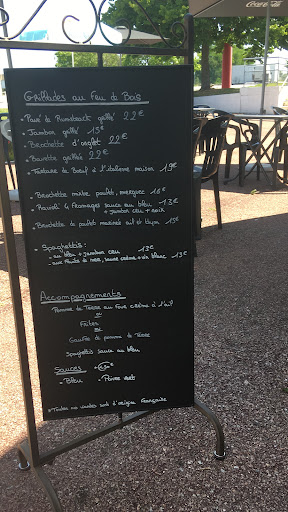 Coca-Cola
Grillades au Feu de Bois
• Pavé de Rumsteack grillé 22€
• Jambon grillé 15€
• Brochette d'onglet 22€
• Bavette grillée 22€
• Tartare de Boeuf à l'italienne maison 19€
• Brochette mixte poulet, merguez 16€
• Ravioli 4 fromages sauce au bleu 13€
+ jambon cru + noix
• Brochette de poulet mariné ail et thym 15€
• Spaghettis :
- au bleu + jambon cru 13€
- aux fruits de mer, sauce crème + vin blanc 13€
Accompagnements
Pomme de Terre au Four crème à l'ail
ou
Frites
ou
Gaufre de pomme de Terre
Spaghettis sauce au bleu
Sauces
• Bleu • Poivre vert
* Toutes nos viandes sont d'origine Française